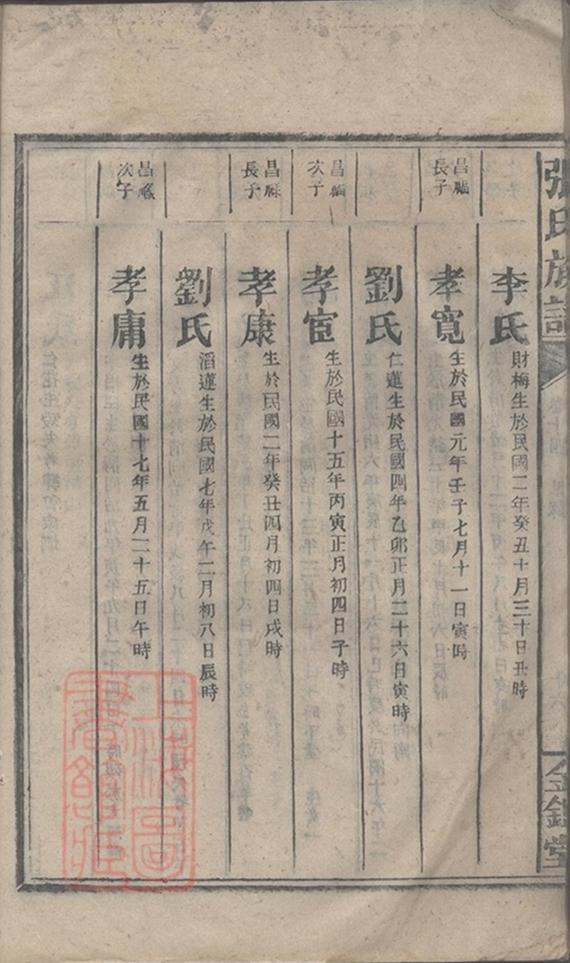 張氏族譜
金鑑堂
李氏 財梅生於民國二年癸丑十月三十日丑時
昌福長子
孝寬 生於民國元年壬子七月十一日寅時
劉氏 仁蓮生於民國四年乙卯正月二十六日寅時
昌福次子
孝宦 生於民國十五年丙寅正月初四日子時
長子
孝康 生於民國二年癸丑四月初四日戌時
劉氏 滔蓮生於民國七年戊午二月初八日辰時
次子
孝庸 生於民國十七年五月二十五日午時
上海圖